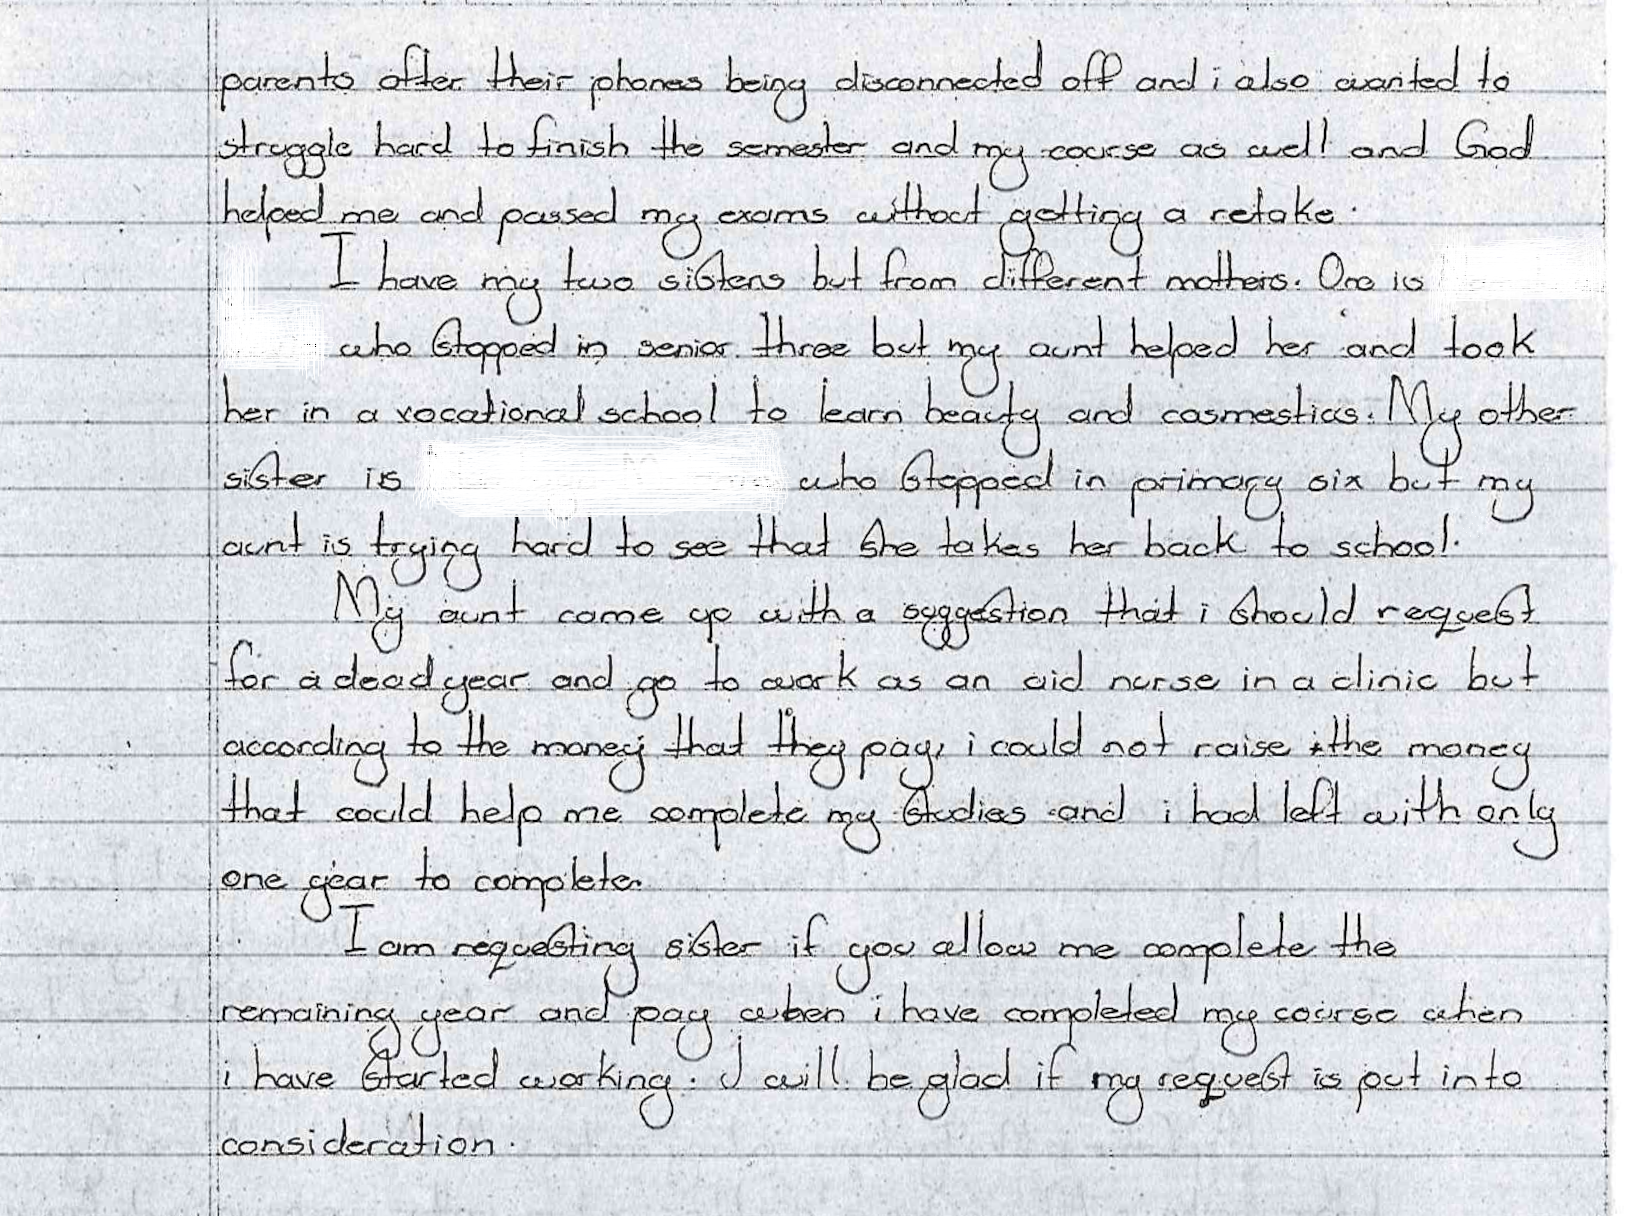 parents after their phones being disconnected off and i also wanted to
struggle hard to finish the semester and my course as well and God
helped me and passed my exams without getting a retake.
I have my two sisters but from different mothers. One is
who stopped in senior three but my aunt helped her and took
her in a vocational school to learn beauty and cosmestics. My other
sister is who stopped in primary six but my
aunt is trying hard to see that she takes her back to school.
My aunt came up with a suggestion that i should request
for a dead year and go to work as an aid nurse in a clinic but
according to the money that they pay, i could not raise the money
that could help me complete my studies and i had left with only
one year to complete.
I am requesting sister if you allow me complete the
remaining year and pay when i have completed my course when
i have started working. I will be glad if my request is put into
consideration.